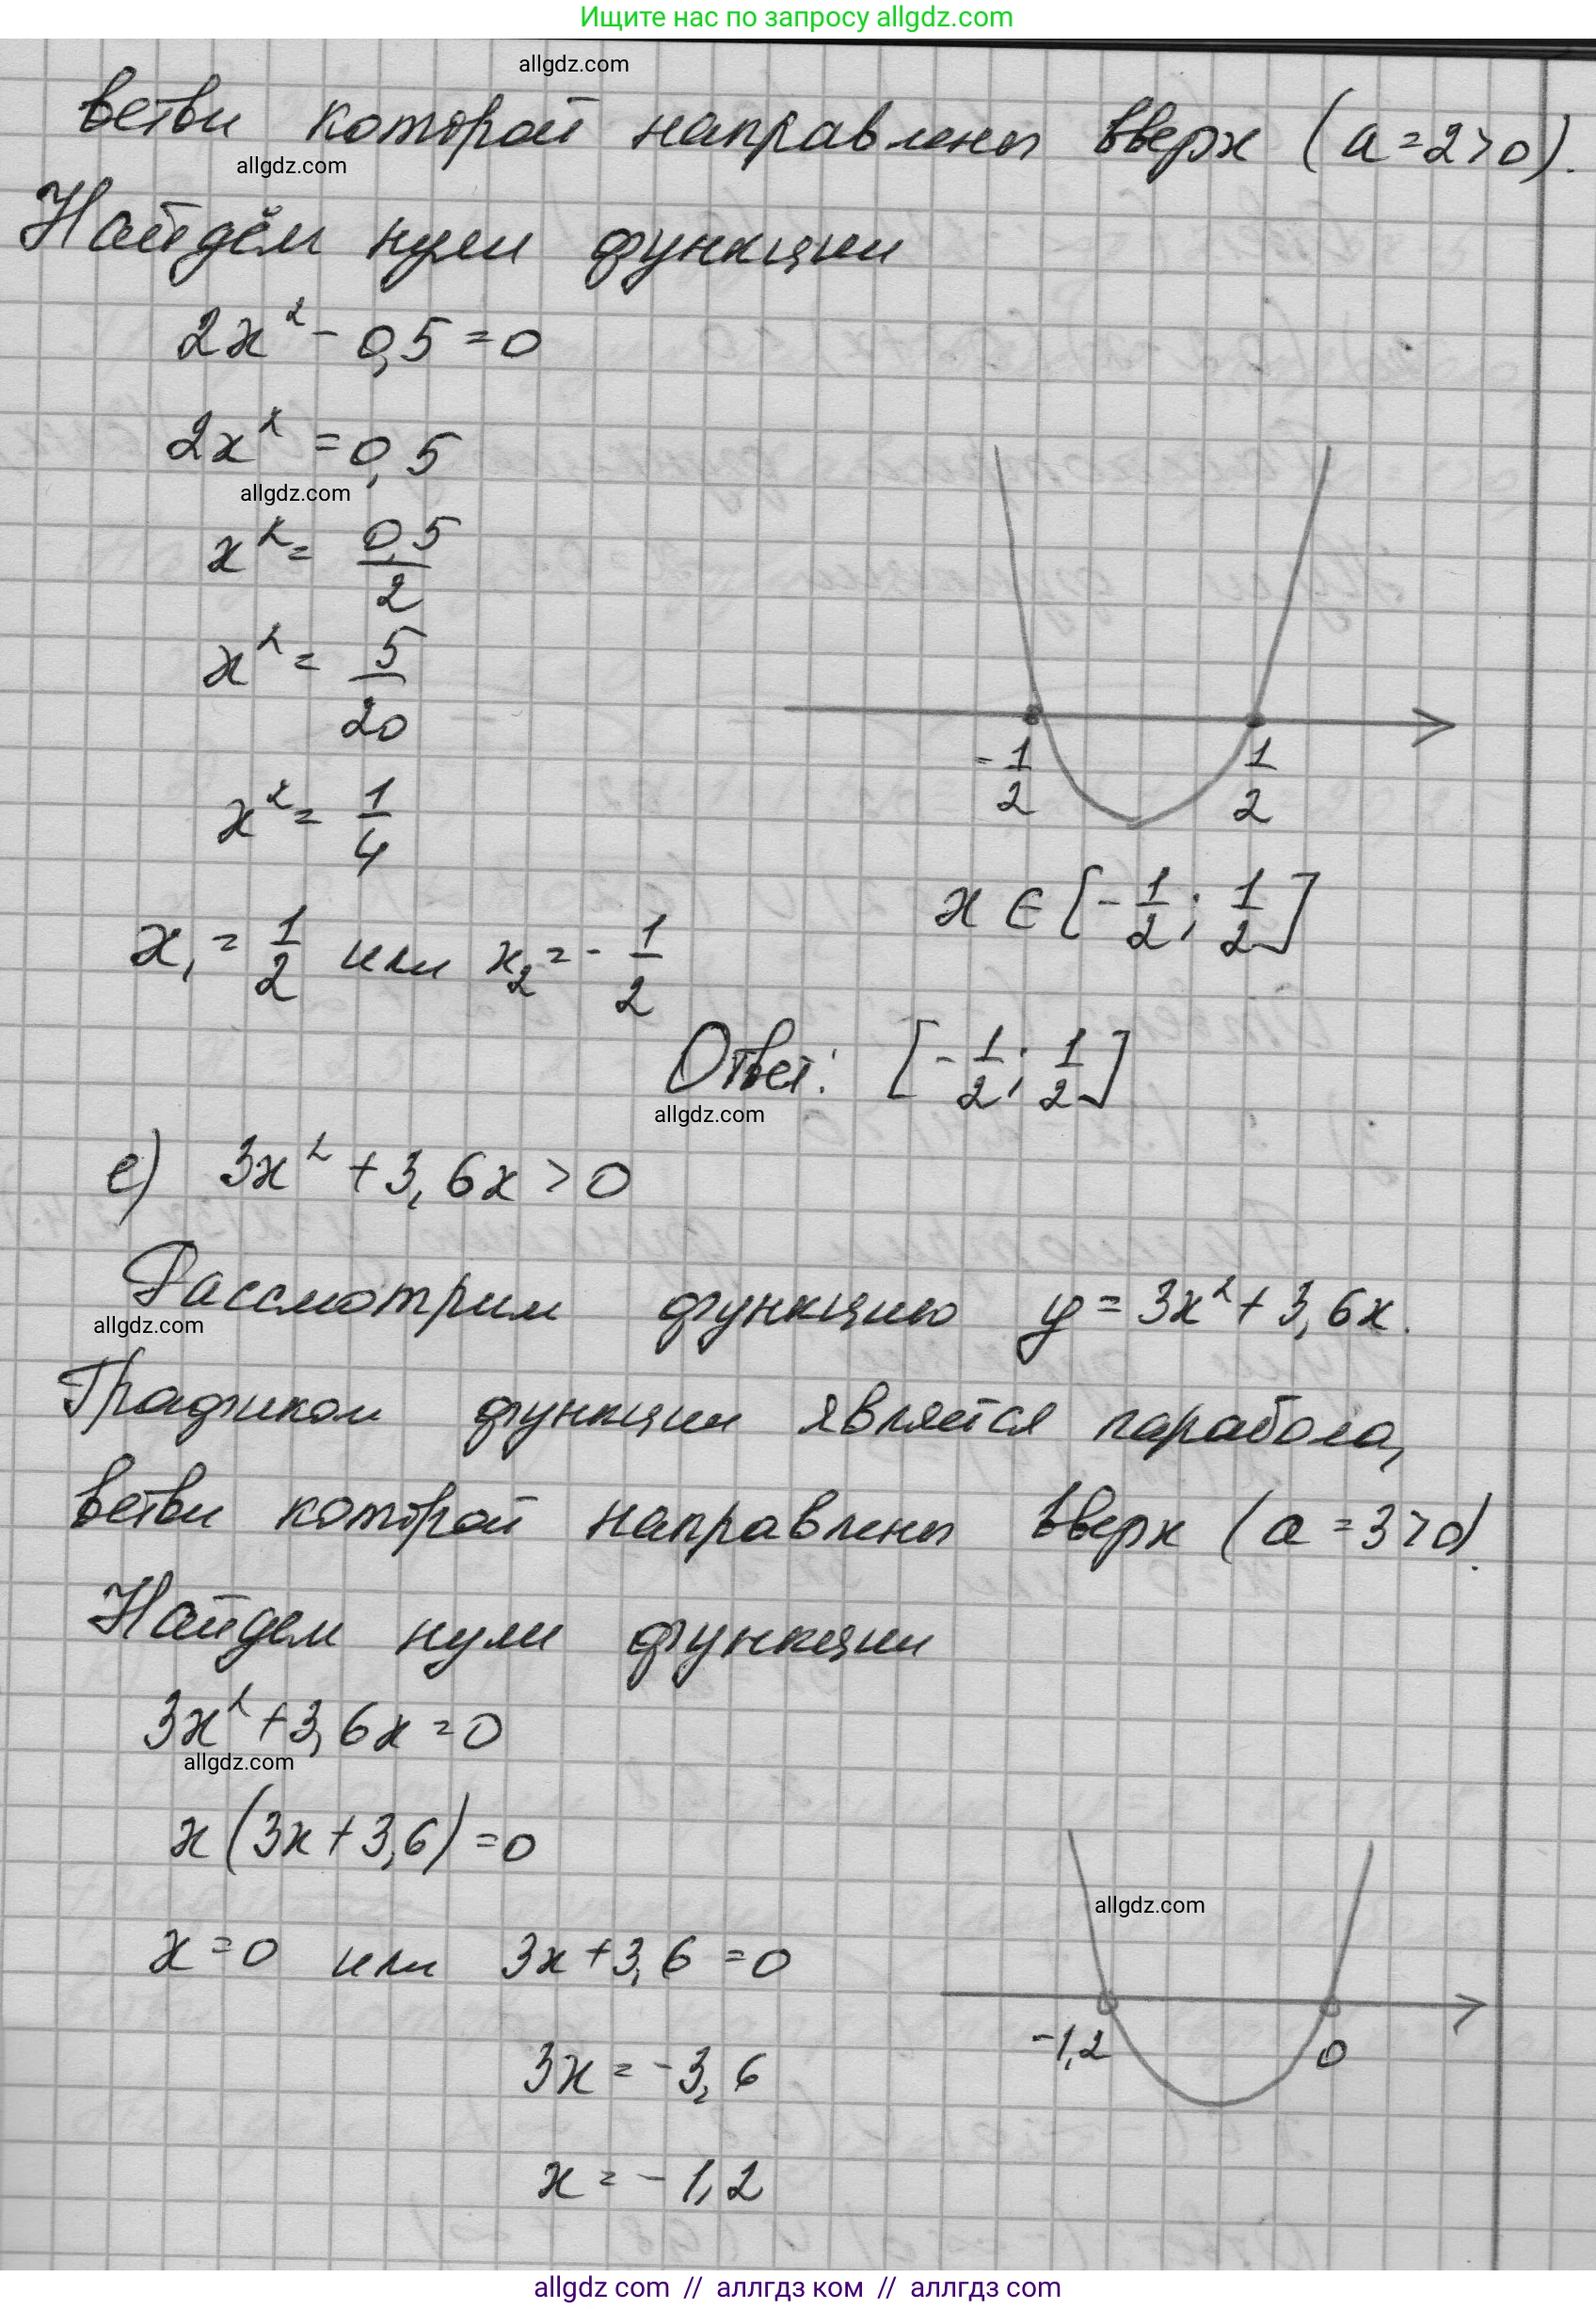 Ищите нас по запросу allgdz.com
allgdz.com
ветви которой направлены вверх (a=2>0).
allgdz.com
Найдём нули функции
2x² - 0,5 = 0
2x² = 0,5
allgdz.com
x² = 0,5/2
x² = 5/20
x² = 1/4
-1/2 1/2
x ∈ [-1/2; 1/2]
x₁ = 1/2 или x₂ = -1/2
Ответ: [-1/2; 1/2]
allgdz.com
е) 3x² + 3,6x > 0
Рассмотрим функцию y = 3x² + 3,6x.
allgdz.com
Графиком функции является парабола,
ветви которой направлены вверх (a = 3>0).
Найдем нули функции
3x² + 3,6x = 0
allgdz.com
x(3x + 3,6) = 0
allgdz.com
x = 0 или 3x + 3,6 = 0
-1,2 0
3x = -3,6
x = -1,2
allgdz com // аллгдз ком // аллгдз com